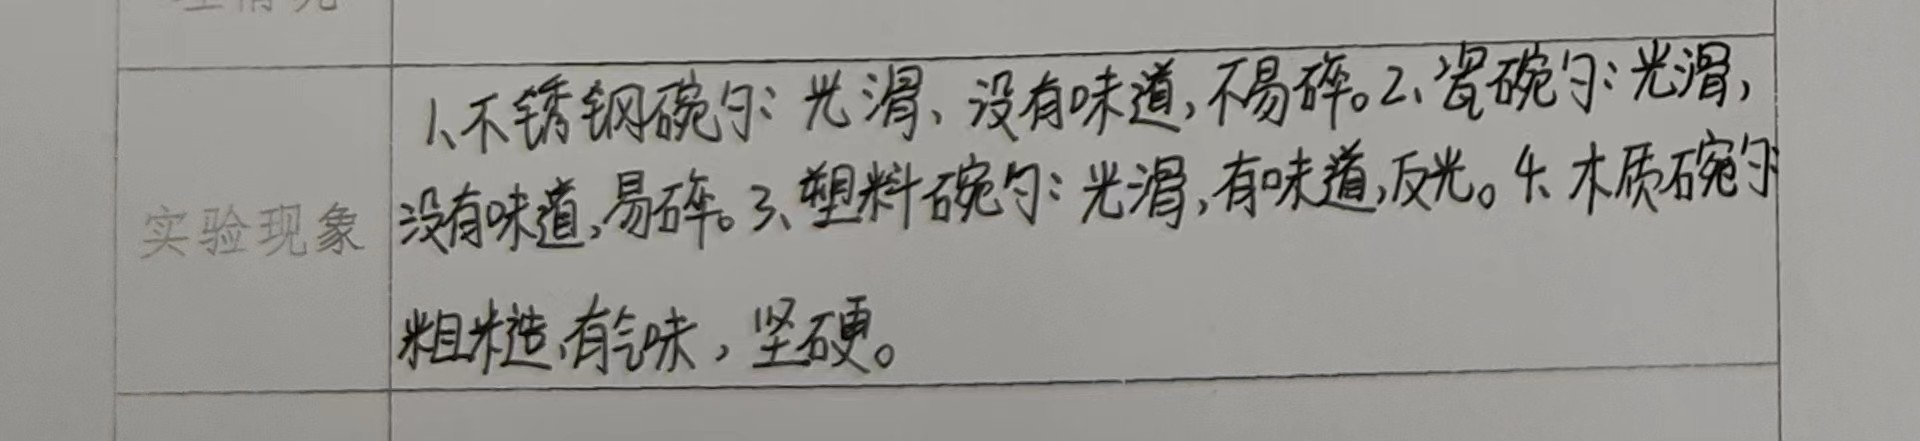 1、不锈钢碗勺：光滑、没有味道，不易碎。2、瓷碗勺：光滑，
没有味道，易碎。3、塑料碗勺：光滑，有味道，反光。4、木质碗勺：
实验现象
粗糙，有气味，坚硬。